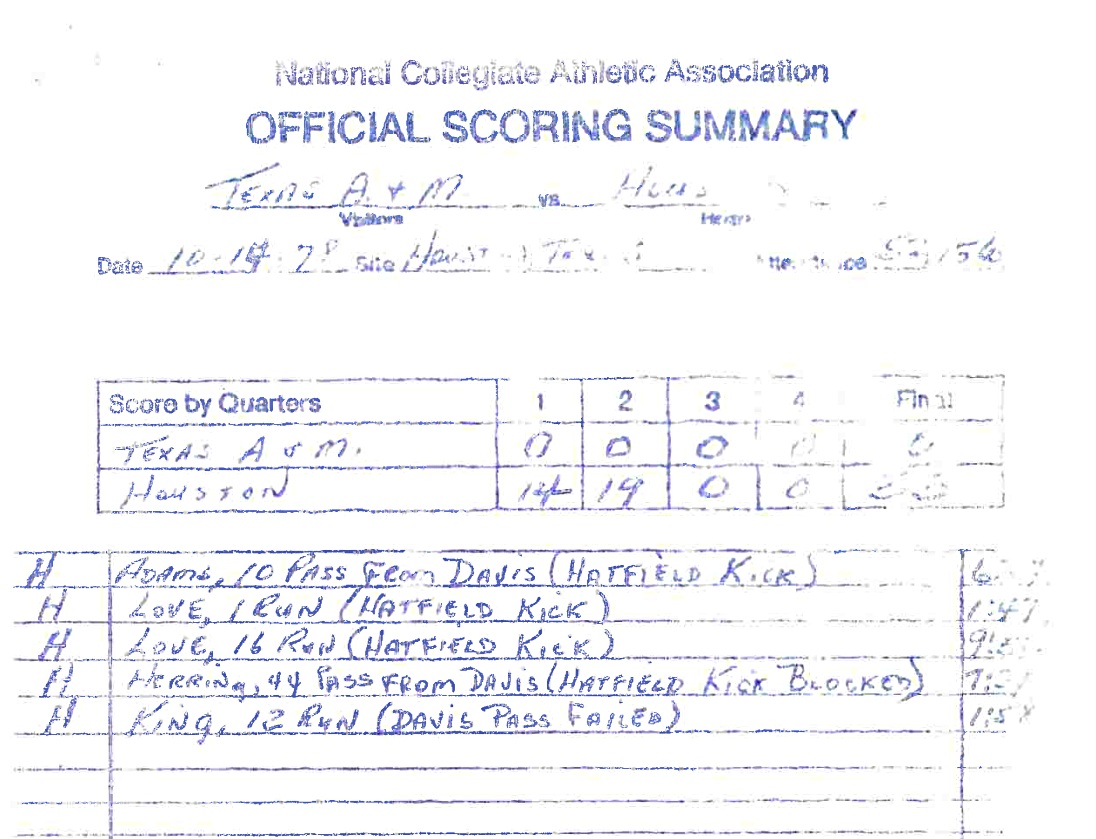 National Collegiate Athletic Association
OFFICIAL SCORING SUMMARY
TEXAS A. & M. vs.
Visitors Home
Date Site Attendance
Score by Quarters 1 2 3 4 Final
TEXAS A & M. 0 0 0 0 0
HOUSTON 14 19 0 0
H ADAMS, 10 PASS FROM DAVIS (HATFIELD KICK)
H LOVE, 1 RUN (HATFIELD KICK) 1:47
H LOVE, 16 RUN (HATFIELD KICK)
H HERRING, 44 PASS FROM DAVIS (HATFIELD KICK BLOCKED)
H KING, 12 RUN (DAVIS PASS FAILED)